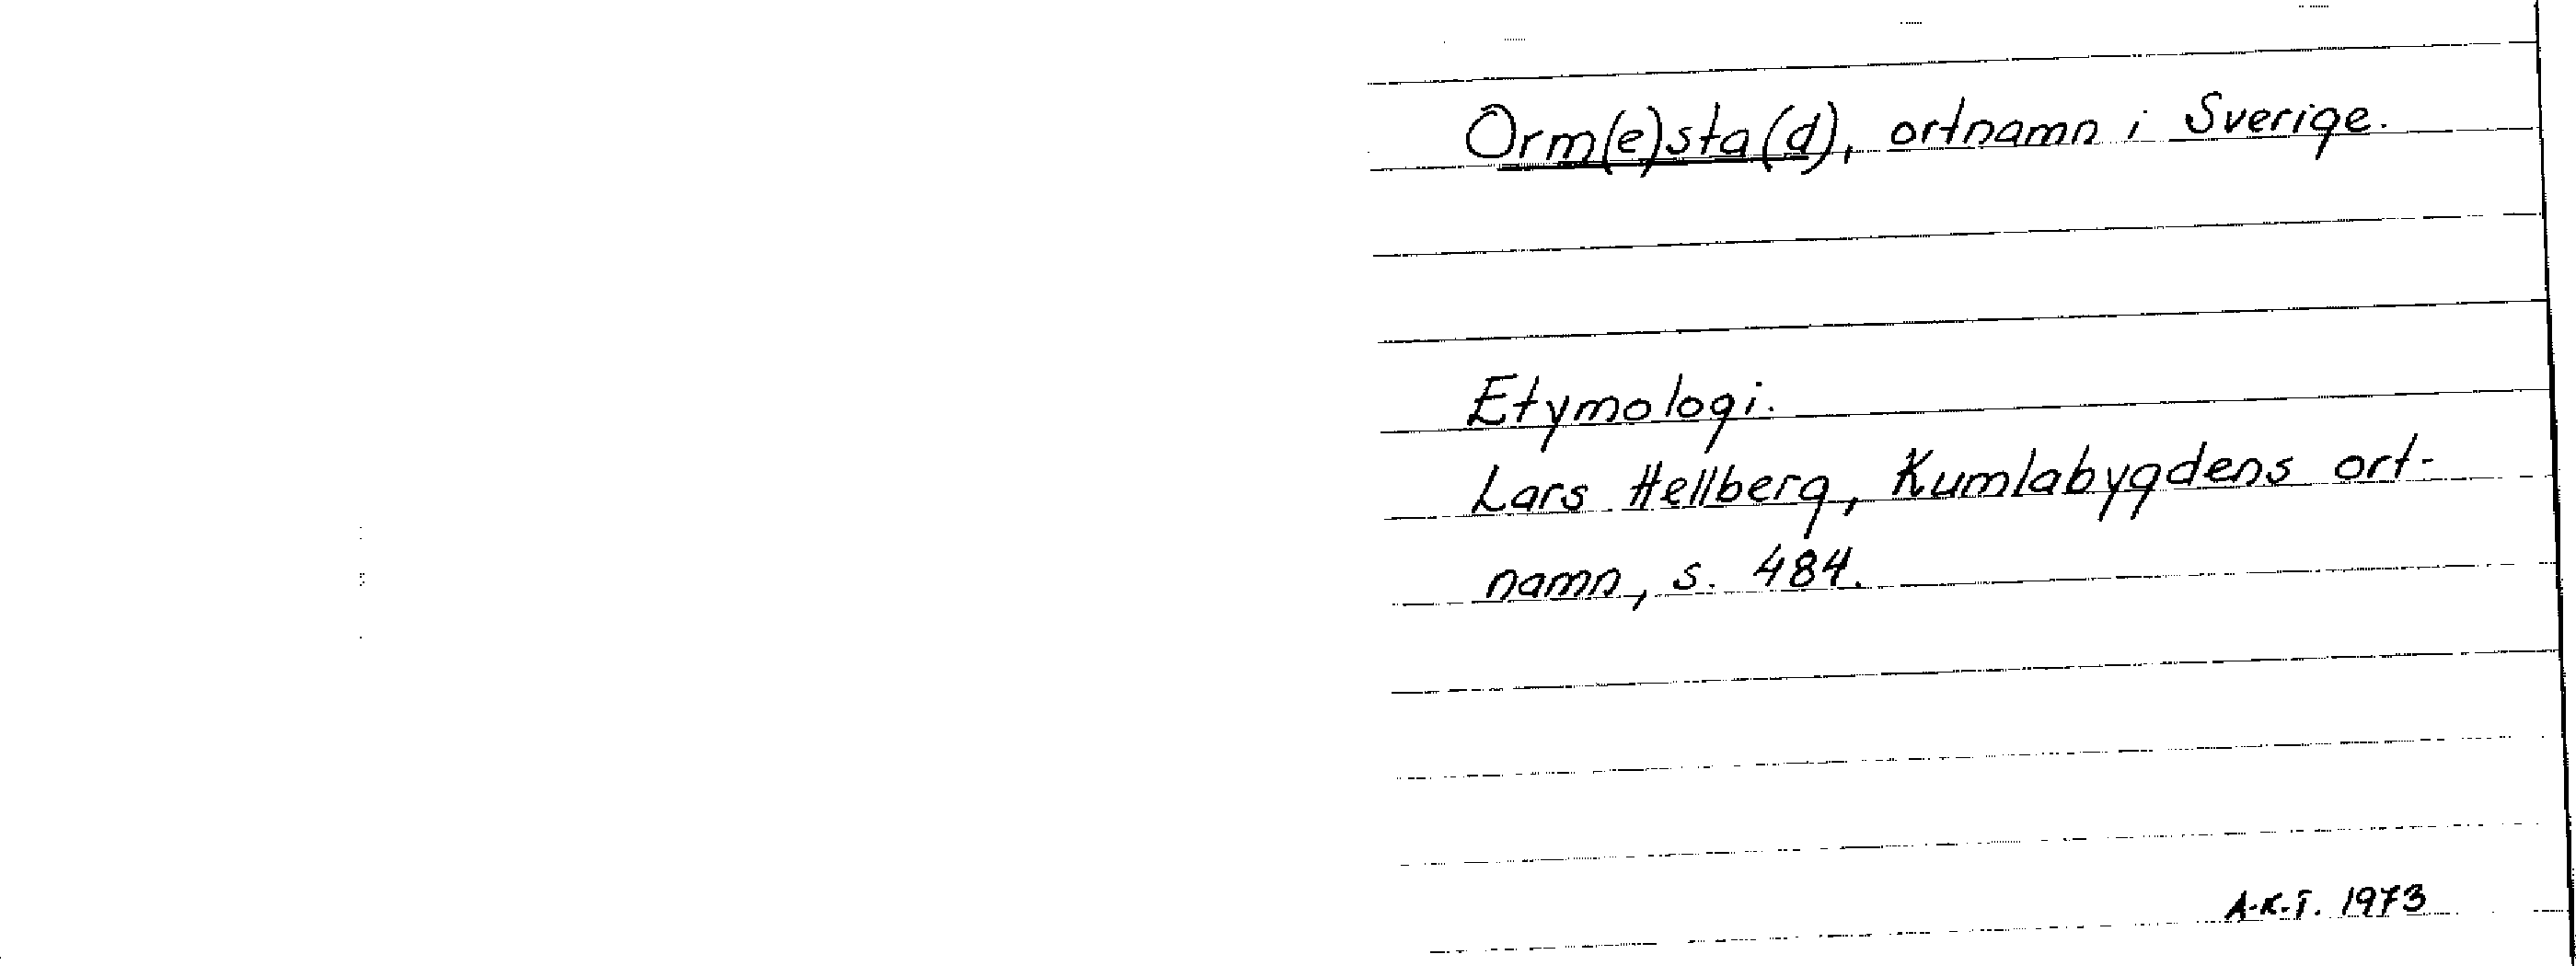 Orm(e)sta(d), ortnamn i Sverige.
Etymologi.
Lars Hellberg, Kumlabygdens ort-
namn, s. 484.
A-K.T. 1973